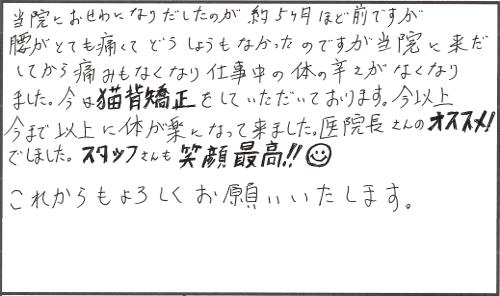 当院におせわになりだしたのが約5ヶ月ほど前ですが
腰がとても痛くてどうしようもなかったのですが当院に来だ
してから痛みもなくなり仕事中の体の辛さがなくなり
ました。今は猫背矯正をしていただいております。今以上
今まで以上に体が楽になって来ました。医院長さんのオススメ!
でしました。スタッフさんも笑顔最高!!
これからもよろしくお願いいたします。